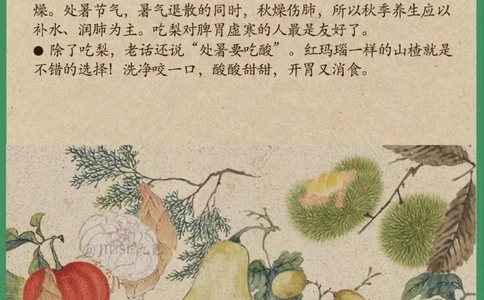 燥。处暑节气，暑气退散的同时，秋燥伤肺，所以秋季养生应以
补水、润肺为主。吃梨对脾胃虚寒的人最是友好了。
● 除了吃梨，老话还说“处暑要吃酸”。红玛瑙一样的山楂就是
不错的选择！洗净咬一口，酸酸甜甜，开胃又消食。